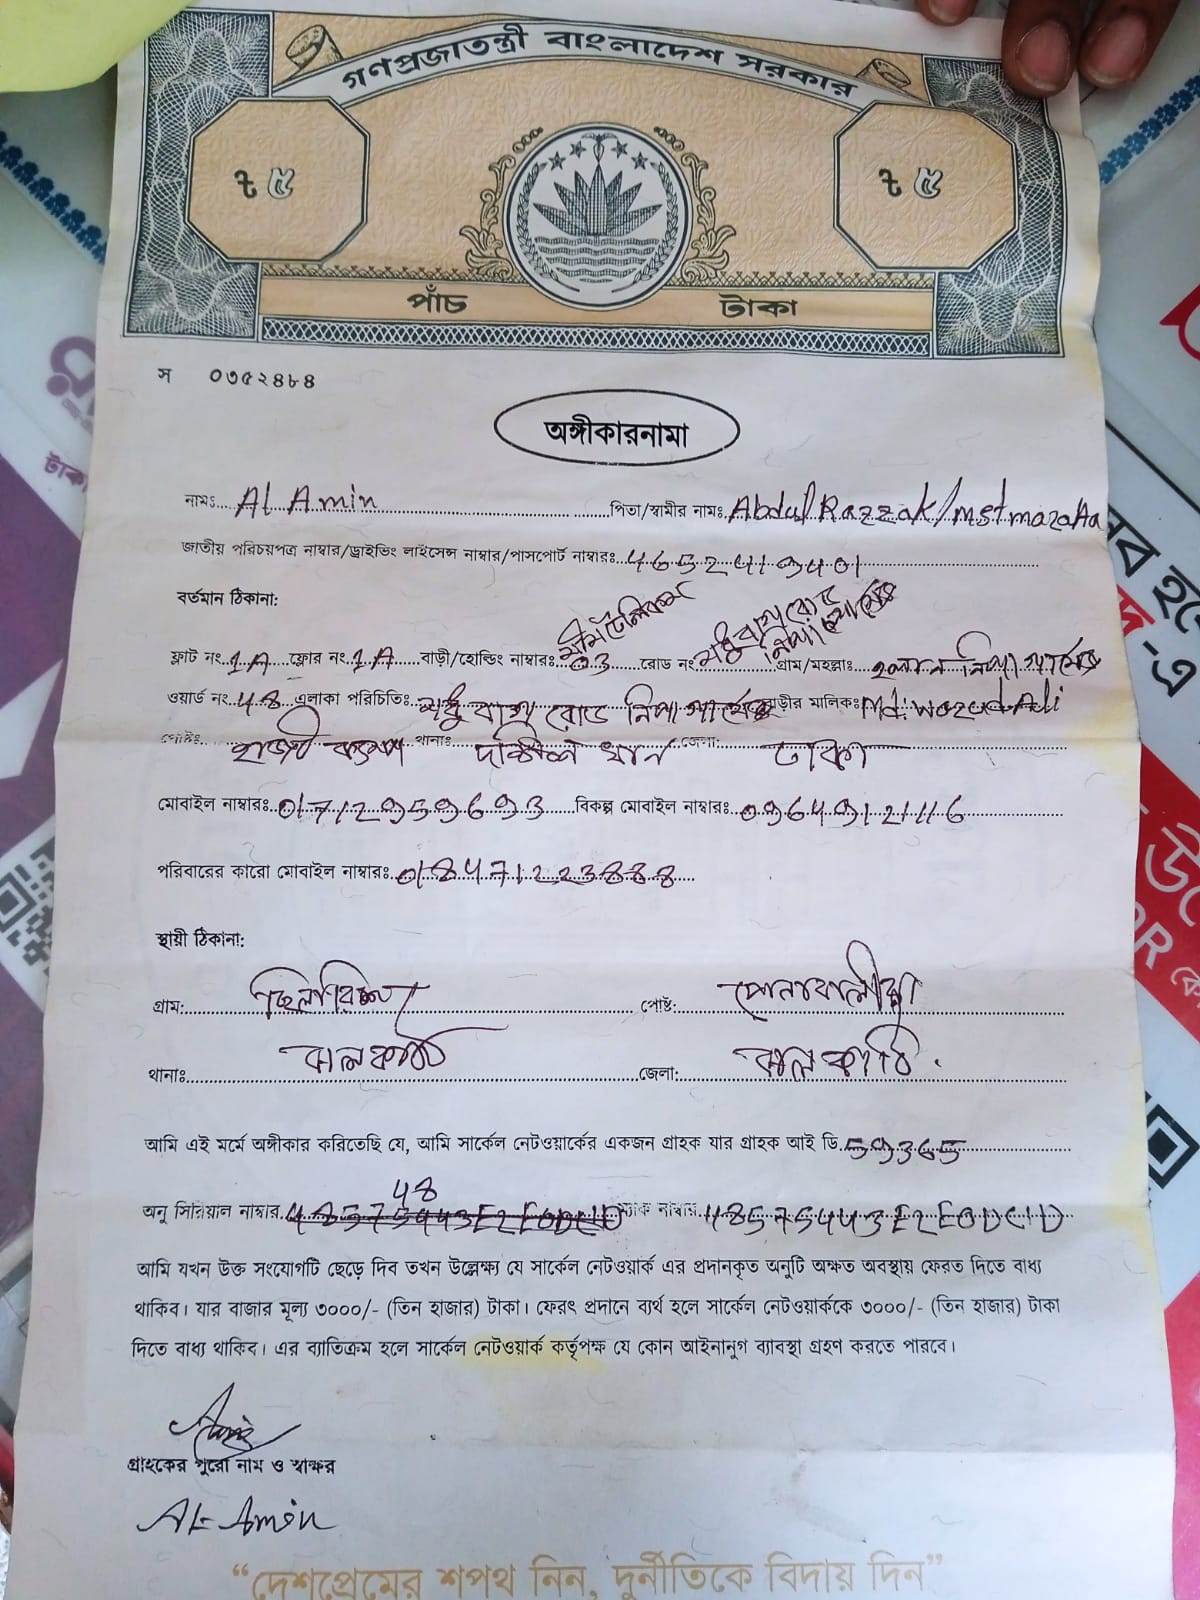 গণপ্রজাতন্ত্রী বাংলাদেশ সরকার
৳ ৫ ৳ ৫
পাঁচ টাকা
স ০৩৫২৪৮৪
অঙ্গীকারনামা
নামঃ Al Amin পিতা/স্বামীর নামঃ Abdul Razzak/mst
জাতীয় পরিচয়পত্র নাম্বার/ড্রাইভিং লাইসেন্স নাম্বার/পাসপোর্ট নাম্বারঃ 4652419401
বর্তমান ঠিকানা:
ফ্লাট নং 1A ফ্লোর নং 1A বাড়ী/হোল্ডিং নাম্বারঃ 03 রোড নং গ্রাম/মহল্লাঃ
ওয়ার্ড নং 48 এলাকা পরিচিতিঃ রোড নিপা গার্মেন্টস বাড়ীর মালিকঃ Md: Wazed Ali
পোষ্টঃ থানাঃ দক্ষিণ খান জেলা: ঢাকা
মোবাইল নাম্বারঃ 01712959693 বিকল্প মোবাইল নাম্বারঃ 09649312116
পরিবারের কারো মোবাইল নাম্বারঃ 018471223888
স্থায়ী ঠিকানা:
গ্রাম: পোষ্ট: পোনাবালীয়া
থানাঃ ঝালকাঠি জেলা: ঝালকাঠি
আমি এই মর্মে অঙ্গীকার করিতেছি যে, আমি সার্কেল নেটওয়ার্কের একজন গ্রাহক যার গ্রাহক আই ডি 59365
48
অনু সিরিয়াল নাম্বার ম্যাক নাম্বার 48575443E2E0DC1D
আমি যখন উক্ত সংযোগটি ছেড়ে দিব তখন উল্লেক্ষ্য যে সার্কেল নেটওয়ার্ক এর প্রদানকৃত অনুটি অক্ষত অবস্থায় ফেরত দিতে বাধ্য
থাকিব। যার বাজার মূল্য ৩০০০/- (তিন হাজার) টাকা। ফেরৎ প্রদানে ব্যর্থ হলে সার্কেল নেটওয়ার্ককে ৩০০০/- (তিন হাজার) টাকা
দিতে বাধ্য থাকিব। এর ব্যাতিক্রম হলে সার্কেল নেটওয়ার্ক কর্তৃপক্ষ যে কোন আইনানুগ ব্যাবস্থা গ্রহণ করতে পারবে।
গ্রাহকের পুরো নাম ও স্বাক্ষর
AL-Amin
“দেশপ্রেমের শপথ নিন, দুর্নীতিকে বিদায় দিন”